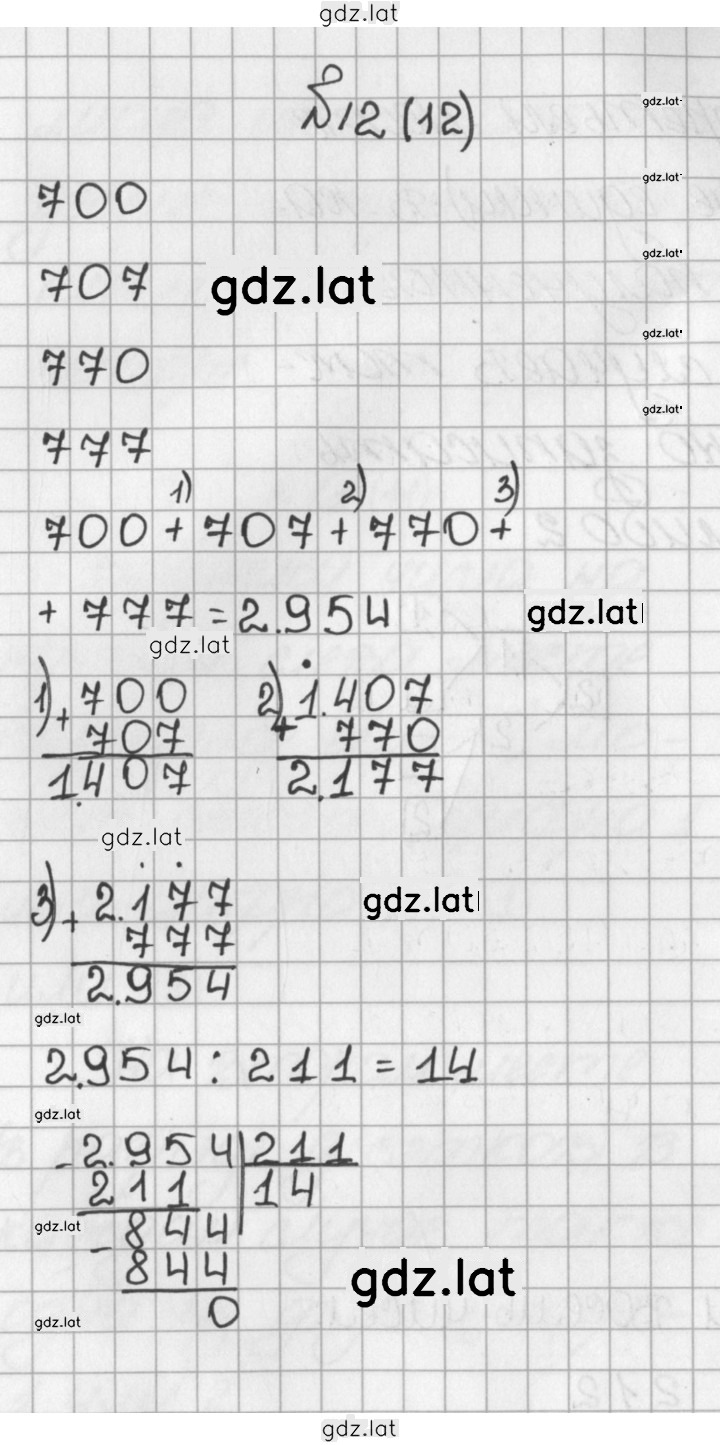 gdz.lat
№12 (12)
gdz.lat
700
gdz.lat
707
gdz.lat
gdz.lat
770
gdz.lat
777
gdz.lat
1) 2) 3)
700 + 707 + 770 +
+ 777 = 2.954
gdz.lat
gdz.lat
1) + 700
707
1.407
2) + 1.407
770
2.177
gdz.lat
3) + 2.177
777
2.954
gdz.lat
gdz.lat
2.954 : 211 = 14
gdz.lat
- 2.954 | 211
211 | 14
gdz.lat
- 844
844
0
gdz.lat
gdz.lat
gdz.lat